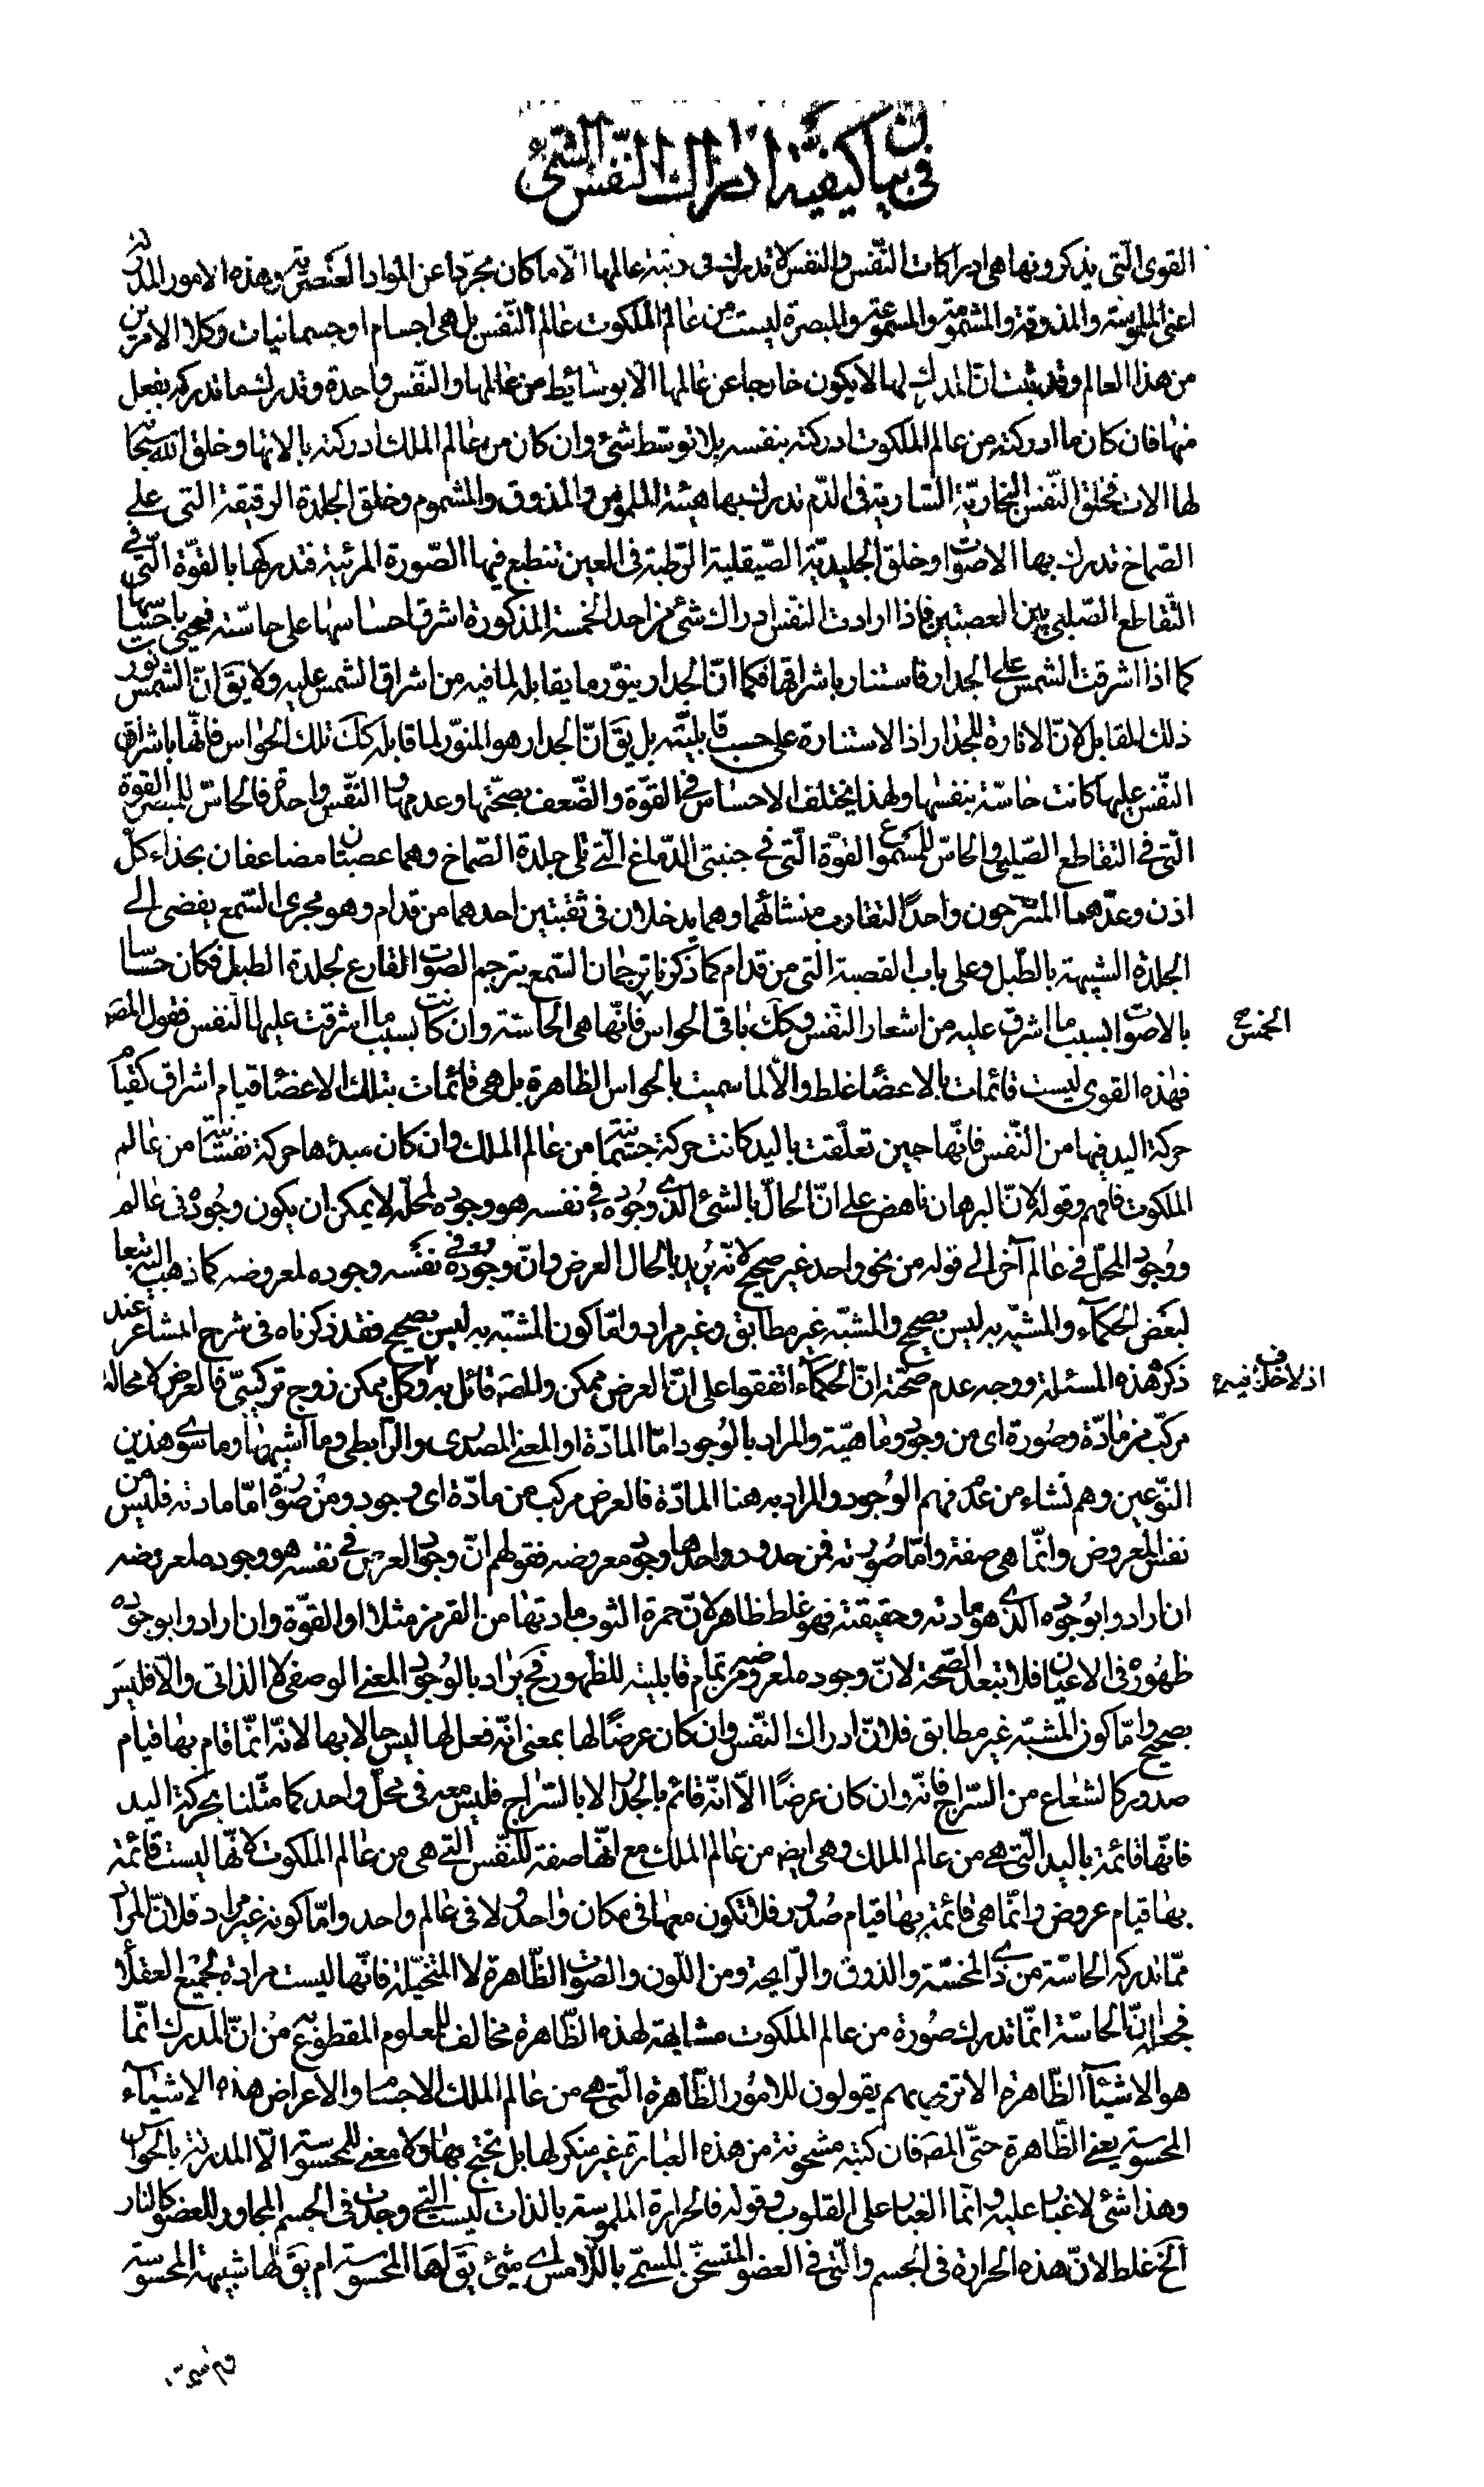 في بيان كيفية ادراك النفس الشيء
القوى الّتي يذكرونها هي ادراكات النّفس والنفس لا تدرك في رتبة عالمها الّا ما كان مجرّدا عن المواد العنصرية وهذه الامور المدركة
اعني الملموسة والمذوقة والمشمومة والمسموعة والمبصرة ليست من عالم الملكوت عالم النّفس بل هي اجسام او جسمانيات وكلا الامرين
من هذا العالم وقد ثبت انّ المدرك لها لا يكون خارجا عن عالمها الّا بوسائط من عالمها والنّفس واحدة وتدرك ما تدركه بفعل
منها فان كان ما ادركته من عالم الملكوت ادركته بنفسه بلا توسّط شيء وان كان من عالم الملك ادركته بالاتها وخلق الله سبحانه
لها الات فخلق النّفس البخاريّة السّارية في الدّم تدرك بها هيئة الملموس والمذوق والمشموم وخلق الجلدة الرقيقة التي على
الصّماخ تدرك بها الاصوات وخلق الجليديّة الصّيقلية الرّطبة في العين تنطبع فيها الصّورة المرئية فتدركها بالقوّة الّتي في
التّقاطع الصّليبي بين العصبتين فاذا ارادت النفس ادراك شيء من احد الخمسة المذكورة اشرق احساسها على حاسّته فحييت باحساسها
كما اذا اشرقت الشمس على الجدار فاستنار باشراقها فكما انّ الجدار ينوّر ما يقابله لما فيه من اشراق الشمس عليه ولا يق انّ الشمس نور
ذلك المقابل لانّ الانارة للجدار اذ الاستنارة على حسب قابليّته بل يق انّ الجدار هو المنوّر لما قابله كك تلك الحواس فانّها باشراق
النّفس عليها كانت حاسّة بنفسها ولهذا يختلف الاحساس في القوّة والضّعف بصحّتها وعدمها والنّفس واحدة فالحاسّ للمبصر القوة
الّتي في التقاطع الصّليبي والحاسّ للمسموع القوّة الّتي في جنبتي الدّماغ الّتي تلي جلدة الصّماخ وهما عصبتان مضاعفان بحذاء كلّ
اذن وعدّهما المشرحون واحدًا لتقارب منشائهما وهما يدخلان في ثقبتين احدهما من قدام وهو مجرى السّمع يفضي الى
الجلدة الشبيهة بالطّبل وعلى باب القصبة التي من قدام كما ذكرنا ترجمان السّمع يترجم الصوت القارع لجلدة الطبل فكان حساسا
بالاصوات بسبب ما اشرق عليه من اشعار النفس وكك باقي الحواس الخمس فانّها هي الحاسّة وان كانت بسبب ما اشرقت عليها النفس فقول المص
فهذه القوى ليست قائمات بالاعضاء غلط والّا لما سميت بالحواس الظاهرة بل هي قائمات بتلك الاعضاء قيام اشراق كقيام
حركة اليد فيها من النّفس فانّها حين تعلّقت باليد كانت حركة جسمانية من عالم الملك وان كان مبدئها حركة نفسانية من عالم
الملكوت فافهم وقوله لانّ البرهان ناهض على انّ الحالّ بالشيء الذي وجوده في نفسه هو وجوده لمحلّه لا يمكن ان يكون وجوده في عالم
ووجود المحلّ في عالم آخر الى قوله من نحو واحد غير صحيح لانّه يريد بالحال العرض وانّ وجوده في نفسه وجوده لمعروضه كما ذهب اليه تبعا
لبعض الحكماء والمشبّه به ليس بصحيح والمشبّه غير مطابق وغير مراد وامّا كون المشبّه به ليس بصحيح فقد ذكرناه في شرح المشاعر عند
ذكر هذه المسئلة ووجه عدم صحّته انّ الحكماء اتفقوا على انّ العرض ممكن والمص قائل به وكلّ ممكن زوج تركيبيّ فالعرض لا محالة
اذ لا خلاف فيه
مركّب من مادّة وصورة اى من وجود وماهيّة والمراد بالوجود امّا المادّة او المعنى المصدرى والرّابطي وما اشبهها وما سوى هذين
النّوعين وهم نشاء من عدم فهم الوجود والمراد به هنا المادّة فالعرض مركب من مادّة اى وجود ومن صورة امّا مادته فليس من
نفس المعروض وانّما هي صفة وامّا صورته فمن حدود واحدها وجود معروضه فقولهم انّ وجود العرض في نفسه هو وجوده لمعروضه
ان ارادوا بوجوده الذي هو مادته وحقيقته فهو غلط ظاهر لانّ حمرة الثوب مادتها من القرمز مثلا او القوّة وان ارادوا بوجوده
ظهوره في الاعيان فلا تبعد الصّحة لانّ وجوده لمعروضه من تمام قابليته للظهور فح يراد بالوجود المعنى الوصفى لا الذاتى والّا فليس
بصحيح وامّا كون المشبّه غير مطابق فلانّ ادراك النّفس وان كان عرضًا لها بمعنى انّه فعل لها ليس حالا بها لانّه انّما قام بها قيام
صدور كالشعاع من السّراج فانّه وان كان عرضًا الّا انّه قائم بالجدار لا بالسّراج فليس معه في محلّ واحد كما مثّلنا بحركة اليد
فانّها قائمة باليد الّتي هي من عالم الملك وهي ايض من عالم الملك مع انّها صفة للنّفس الّتي هي من عالم الملكوت لانّها ليست قائمة
بها قيام عروض وانّما هي قائمة بها قيام صدور فلا تكون معها في مكان واحد ولا في عالم واحد وامّا كونه غير مراد فلانّ المراد
ممّا تدركه الحاسّة من ذي المجسّة والذوق والرّايحة ومن اللّون والصّوت الظّاهرة لا المتخيّلة فانّها ليست مرادة لجميع العقلاء
فجعله انّ الحاسّة انّما تدرك صورة من عالم الملكوت مشابهة لهذه الظّاهرة مخالف للعلوم المقطوع به من انّ المدرك انّما
هو الاشياء الظّاهرة الا ترى بهم يقولون للامور الظّاهرة الّتي هي من عالم الملك الاجسام والاعراض هذه الاشياء
المحسوسة يعنى الظّاهرة حتّى المص فان كتبه مشحونة من هذه العبارة غير منكر لها بل يحتج بها ولا معنى للمحسوسة الّا المدركة بالحواس
وهذا شيء لا غبار عليه وانّما الغبار على القلوب وقوله فالحرارة الملموسة بالذات ليست التي وجدت في الجسم المجاور للعضو كالنار
الخ غلط لانّ هذه الحرارة في الجسم والّتي في العضو المتسخّن المسمّى باللّامس اى شيء يق لها المحسوسة ام يق لها شبيهة المحسوسة